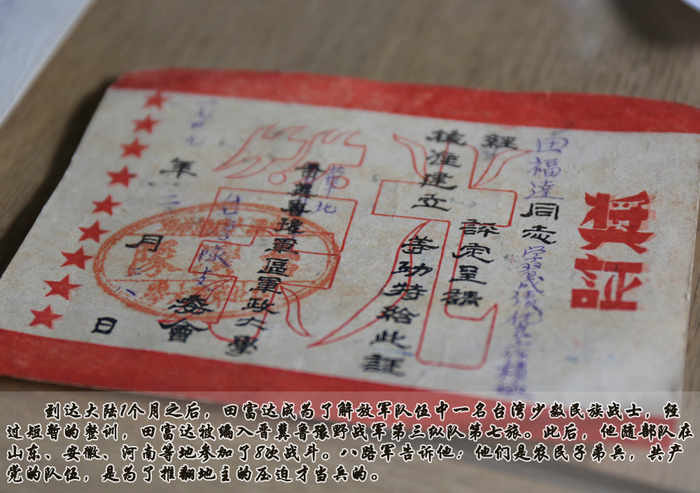 奬証
田福達同志学習成績
經 評定呈請
核准建立 功特给此証
華北
晋冀魯豫軍區軍政大學
委會
一九四九年二月八日
到达大陆1个月之后，田富达成为了解放军队伍中一名台湾少数民族战士，经
过短暂的整训，田富达被编入晋冀鲁豫野战军第三纵队第七旅。此后，他随部队在
山东、安徽、河南等地参加了8次战斗。八路军告诉他：他们是农民子弟兵，共产
党的队伍，是为了推翻地主的压迫才当兵的。